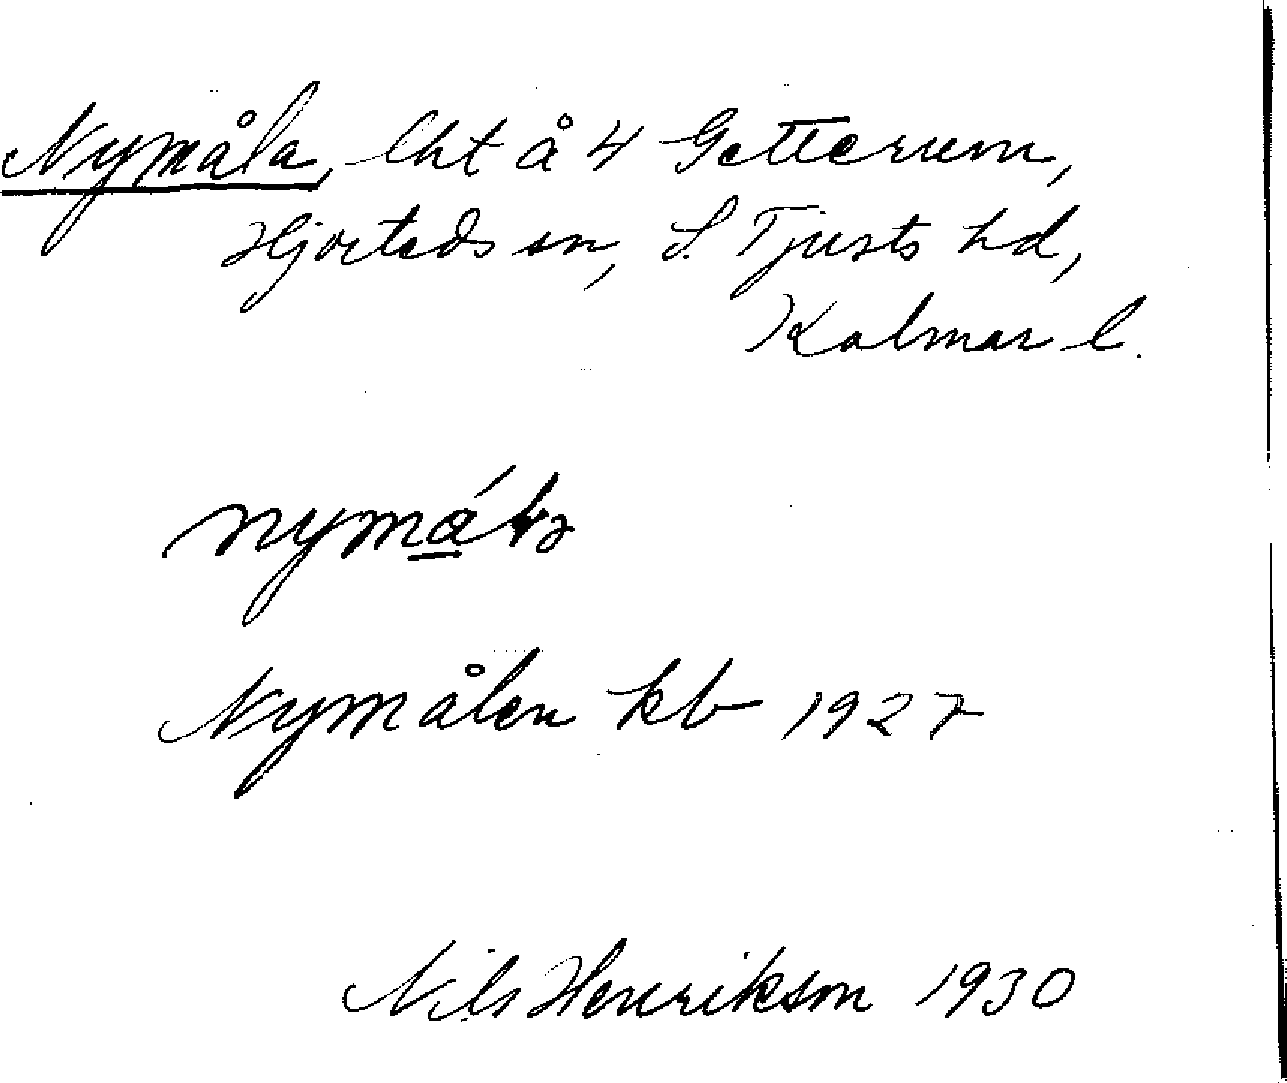 Nymåla, lht å 4 Getterum,
Hjorteds sn, S. Tjusts hd,
Kalmar l.
Nymålen kb 1927
Nils Henrikson 1930